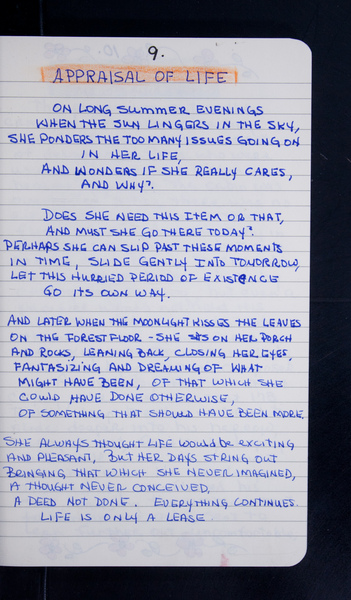 9.
APPRAISAL OF LIFE
ON LONG SUMMER EVENINGS
WHEN THE SUN LINGERS IN THE SKY,
SHE PONDERS THE TOO MANY ISSUES GOING ON
IN HER LIFE,
AND WONDERS IF SHE REALLY CARES,
AND WHY?
DOES SHE NEED THIS ITEM OR THAT,
AND MUST SHE GO THERE TODAY?
PERHAPS SHE CAN SLIP PAST THESE MOMENTS
IN TIME, SLIDE GENTLY INTO TOMORROW,
LET THIS HURRIED PERIOD OF EXISTENCE
GO ITS OWN WAY.
AND LATER WHEN THE MOONLIGHT KISSES THE LEAVES
ON THE FOREST FLOOR - SHE SITS ON HER PORCH
AND ROCKS, LEANING BACK, CLOSING HER EYES,
FANTASIZING AND DREAMING OF WHAT
MIGHT HAVE BEEN, OF THAT WHICH SHE
COULD HAVE DONE OTHERWISE,
OF SOMETHING THAT SHOULD HAVE BEEN MORE.
SHE ALWAYS THOUGHT LIFE WOULD BE EXCITING
AND PLEASANT, BUT HER DAYS STRING OUT
BRINGING THAT WHICH SHE NEVER IMAGINED,
A THOUGHT NEVER CONCEIVED,
A DEED NOT DONE. EVERYTHING CONTINUES.
LIFE IS ONLY A LEASE.